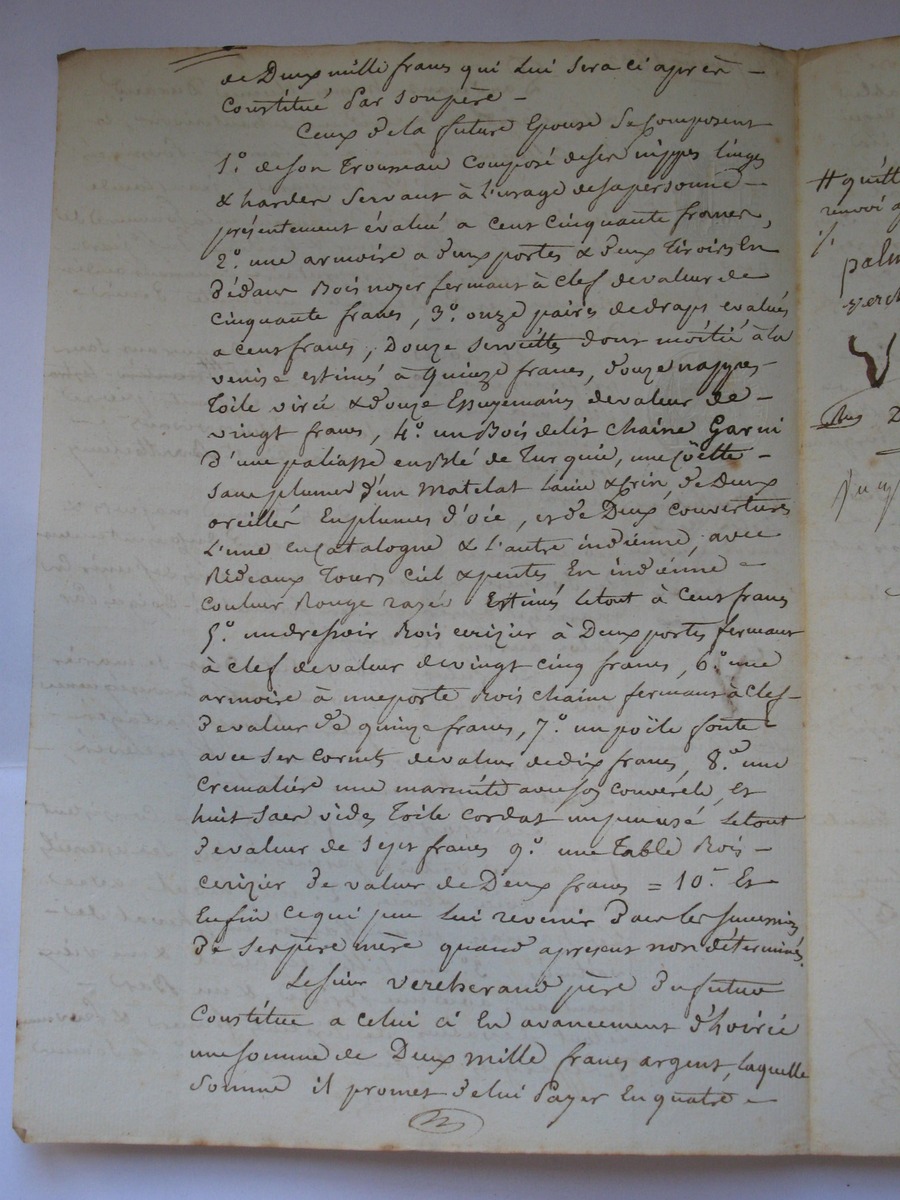 de Deux mille francs qui Lui sera ci après -
Constitué Par son père -
Ceux de la future Epouse se composent
1.° de son Trousseau Composé de ses nippes linges
& hardes Servant à l'usage de sa personne -
présentement évalué a cent cinquante francs,
2.° une armoire a deux portes & deux Tiroirs En
dedans Bois noyer fermant à clef de valeur de
Cinquante francs, 3.° onze paires de draps evalués
a cent francs, Douze serviettes dont moitié à la
venise estimés à Quinze francs, douze nappes
Toile virée & douze Essuyemains de valeur de -
vingt francs, 4.° un Bois de lit chaine Garni
d'une paliasse en Blé de Turquie, une Coëtte -
sans plumes d'un matelat laine & crin, de Deux
oreillés En plumes d'oie, et de Deux couvertures
L'une en Catalogne & L'autre indienne, avec
Rideaux Tours Ciel & pentes En indienne -
Couleur Rouge Estimés le tout à Cent francs
5.° un dressoir Bois cerizier à Deux portes fermant
à clef de valeur de vingt cinq francs, 6.° une
armoire à une porte Bois chaine fermant à Clef -
de valeur de quinze francs, 7.° un poële fonte
avec ses cornets de valeur de dix francs, 8.° une
Cremaliere une marmite avec son couvércle, Et
huit sacs vides Toile Cordat Le tout
de valeur de sept francs 9.° une Table Bois -
cerizier de valeur de Deux francs = 10.° Et
Enfin ce qui peu Lui revenir dans les succession
de ses père mère quand apresent non déterminés.
Le sieur vercherand père du futur
Constitue a celui ci En avancement d'hoirie
une somme de Deux mille francs argent, laquelle
Somme il promet de lui Payer En quatre -
# quitt
renvoi a
palm
verch